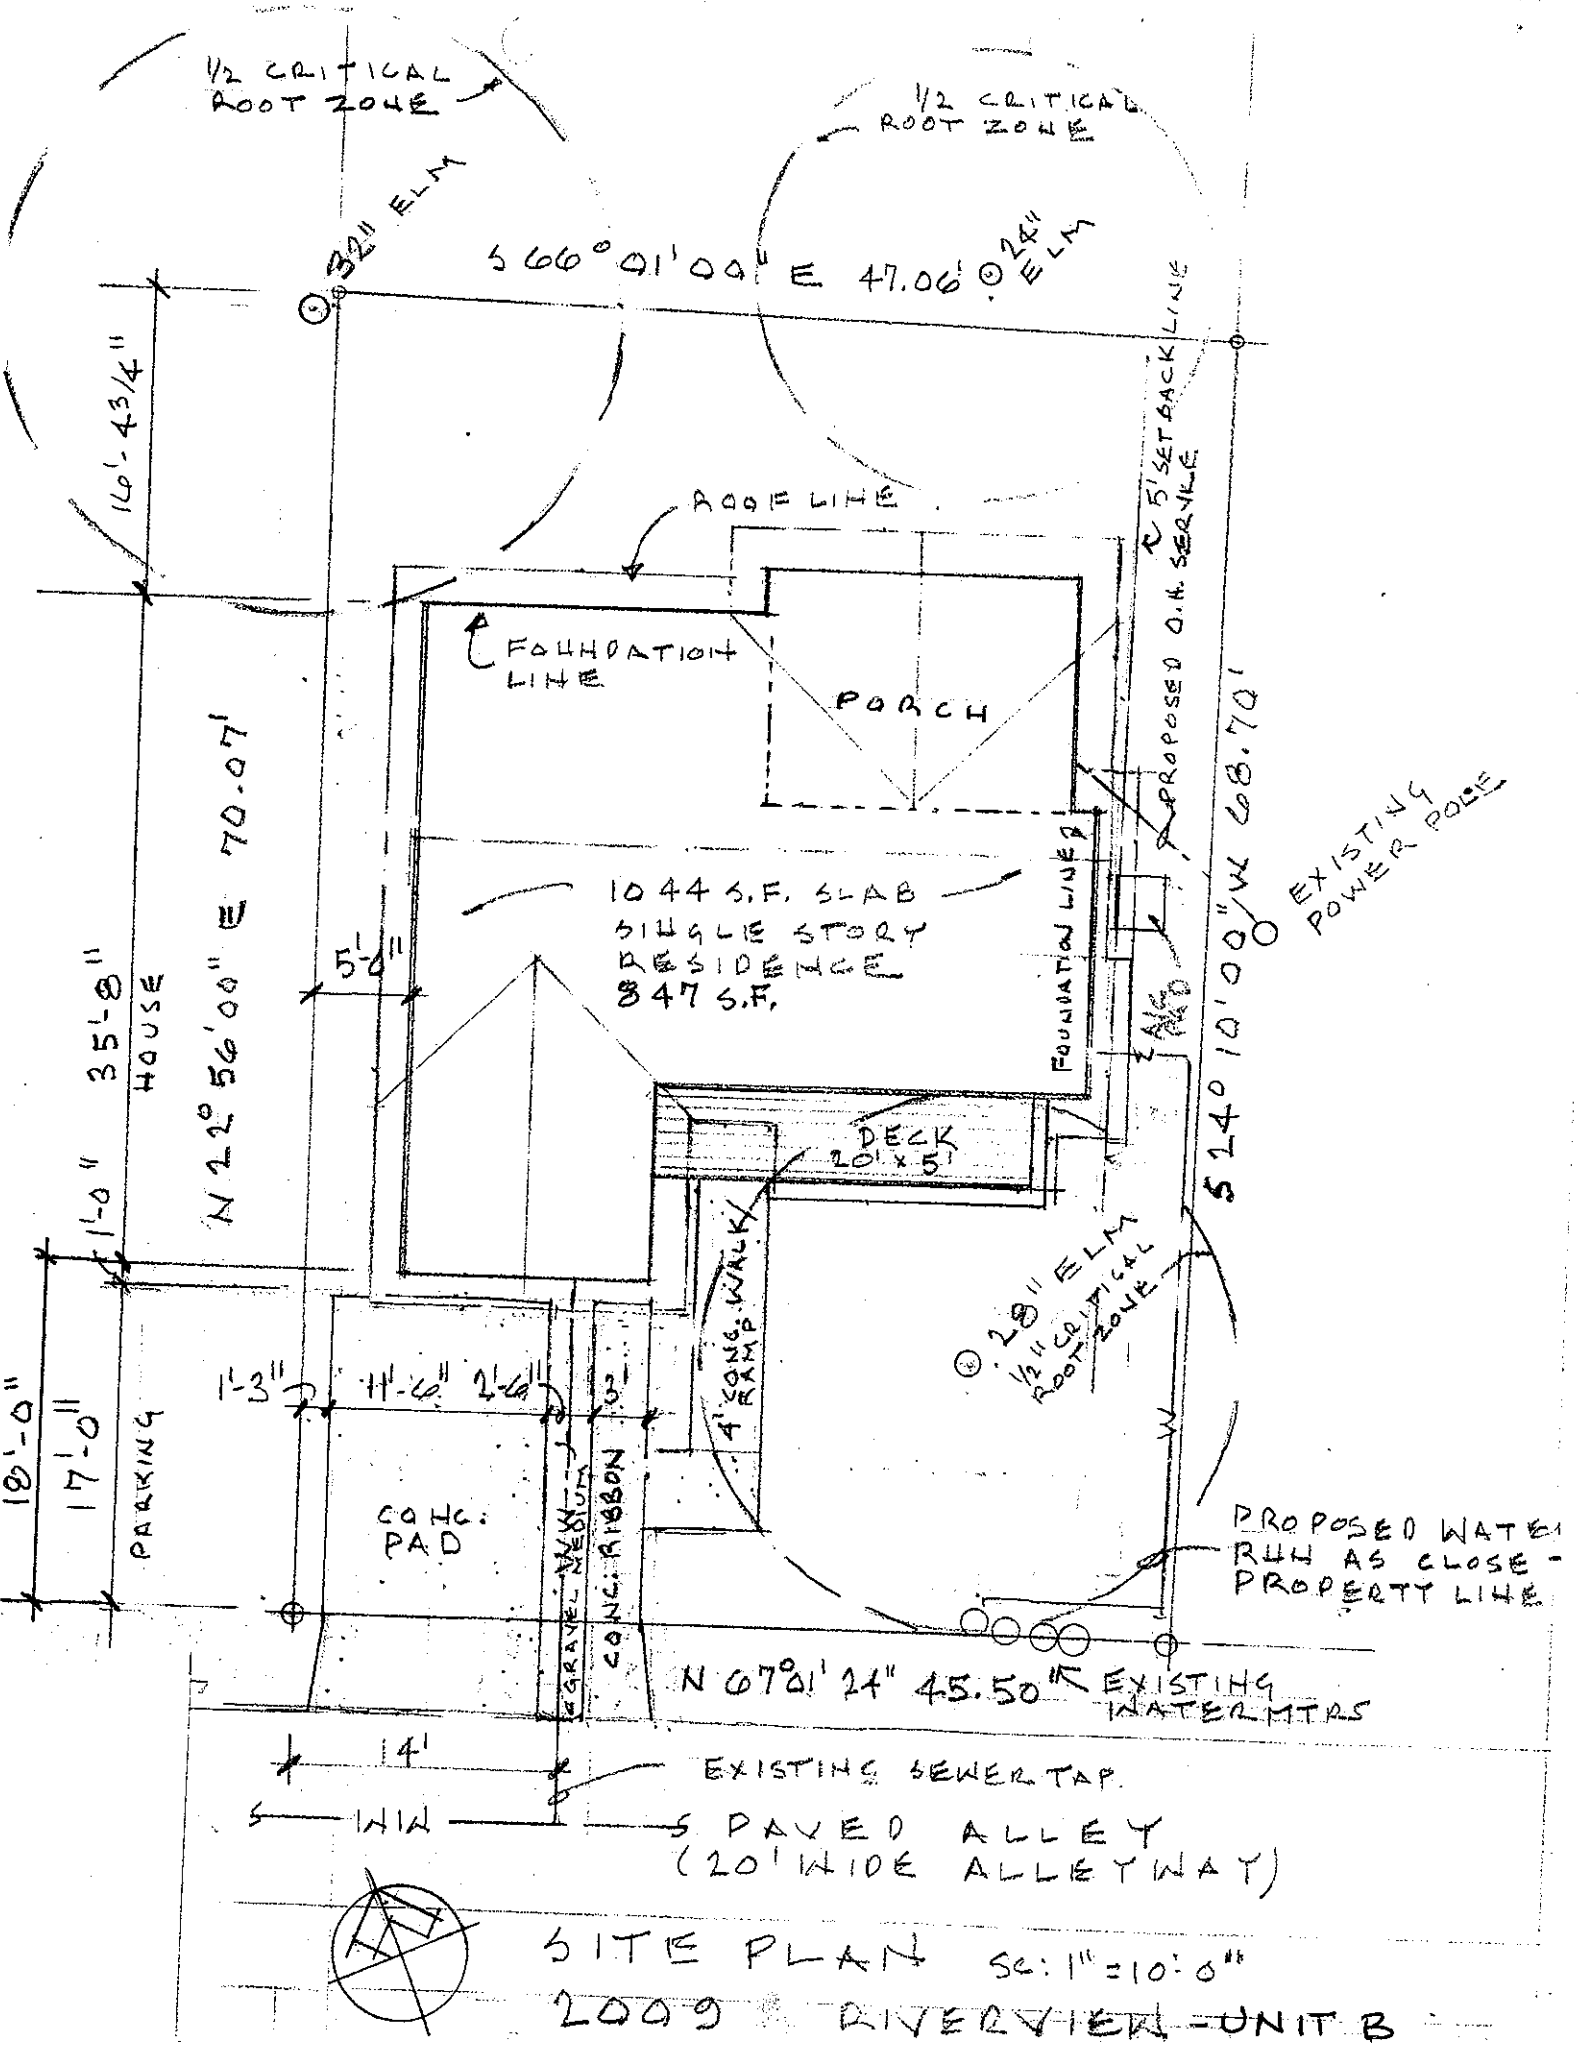 1/2 CRITICAL
ROOT ZONE
1/2 CRITICAL
ROOT ZONE
32" ELM
S 66° 01' 00" E 47.06'
24"
ELM
16'-4 3/4"
5' SETBACK LINE
PROPOSED O.H. SERVICE
ROOF LINE
FOUNDATION
LINE
PORCH
N 22° 56' 00" E 70.07'
S 24° 10' 00" W 68.70'
EXISTING
POWER POLE
35'-8"
HOUSE
5'-0"
1044 S.F. SLAB
SINGLE STORY
RESIDENCE
847 S.F.
FOUNDATION LINE
A/C
PAD
DECK
20' x 5'
1'-0"
4' CONC. WALK
RAMP
28" ELM
1/2" CRITICAL
ROOT ZONE
18'-0"
17'-0"
PARKING
1'-3"
11'-6"
2'-6"
3'
CONC.
PAD
WW
GRAVEL MEDIUM
CONC. RIBBON
W
PROPOSED WATE
RUN AS CLOSE -
PROPERTY LINE
N 67° 01' 24" 45.50'
EXISTING
WATER MTRS
14'
EXISTING SEWER TAP.
S WW S
PAVED ALLEY
(20' WIDE ALLEYWAY)
SITE PLAN SC: 1"=10'-0"
2009 RIVERVIEW - UNIT B